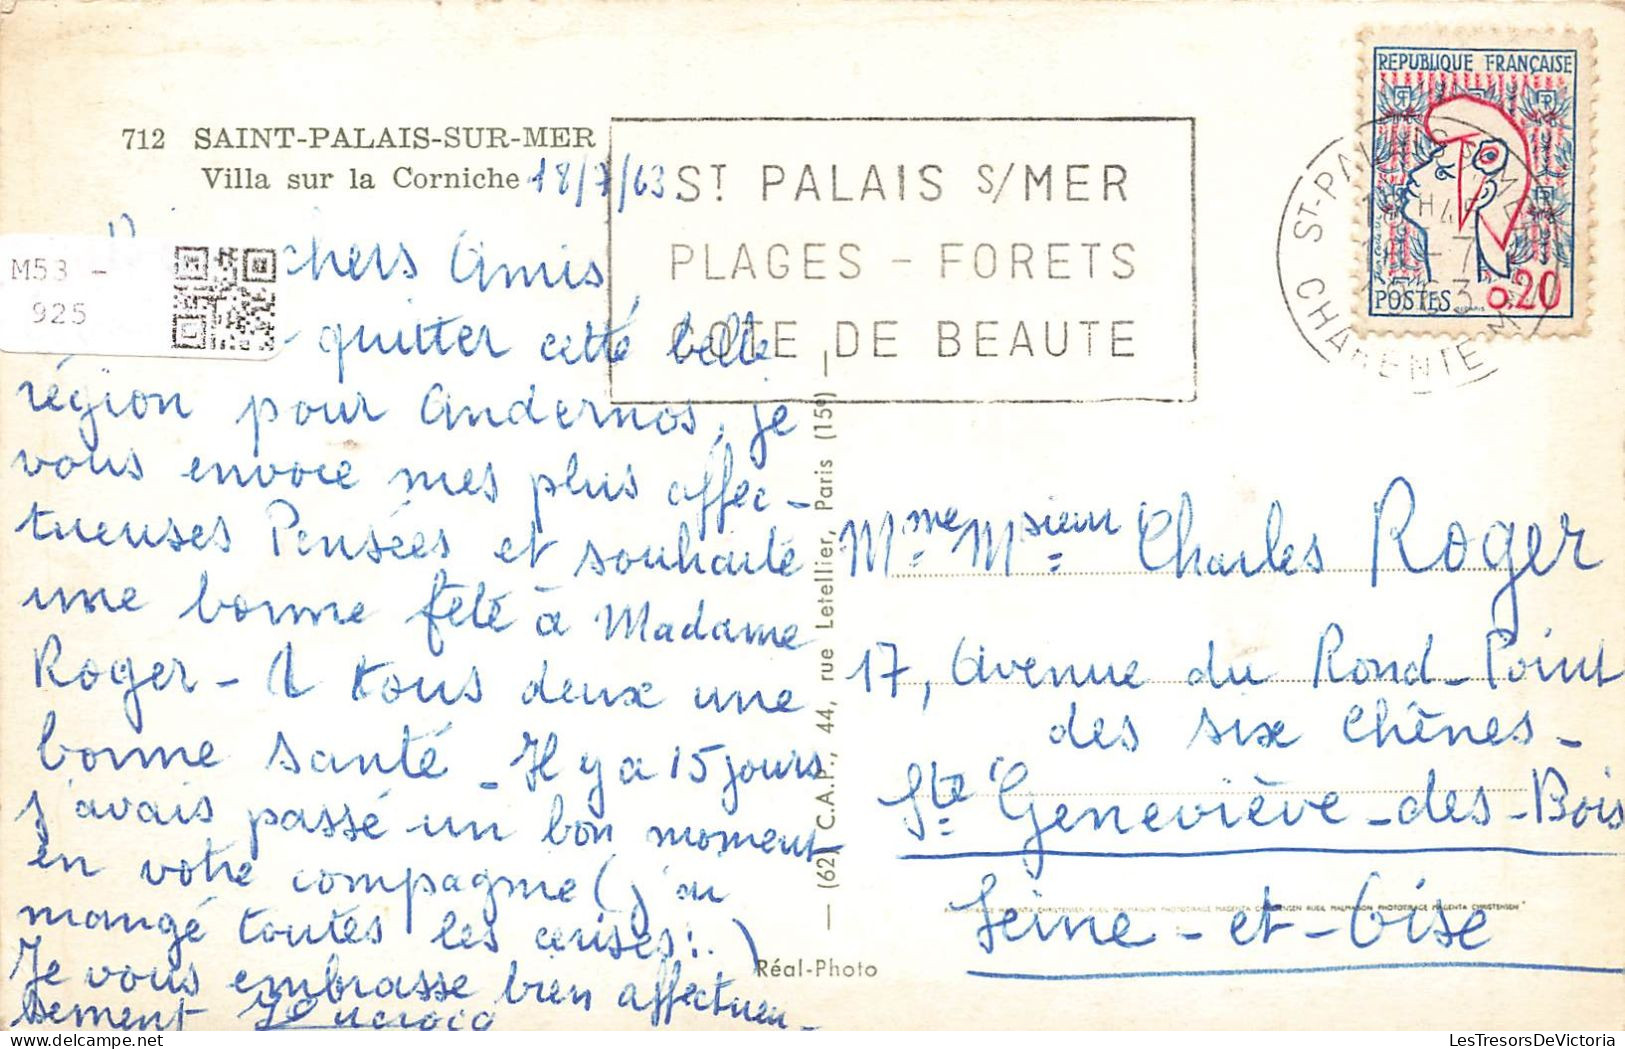 712 SAINT-PALAIS-SUR-MER
Villa sur la Corniche
18/7/63
ST PALAIS S/MER
PLAGES - FORETS
COTE DE BEAUTE
REPUBLIQUE FRANÇAISE
POSTES 0,20
ST-PALAIS S/MER
CHARENTE MME
M53 -
925
chers Amis,
quitter cette belle
région pour Andernos, je
vous envoie mes plus affec-
tueuses Pensées et souhaite
une bonne fête à Madame
Roger - A tous deux une
bonne santé - Il y a 15 jours
j'avais passé un bon moment
en votre compagnie (j'ai
mangé toutes les cerises!..)
Je vous embrasse bien affectueu-
sement
Mme Msieur Charles Roger
17, Avenue du Rond-Point
des six Chênes -
Ste Geneviève-des-Bois
Seine-et-Oise
— (62) C.A.P., 44, rue Letellier, Paris (15e) —
Réal-Photo
LesTresorsDeVictoria